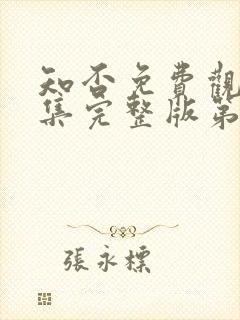 知否免費觀
集完整版第
張永標